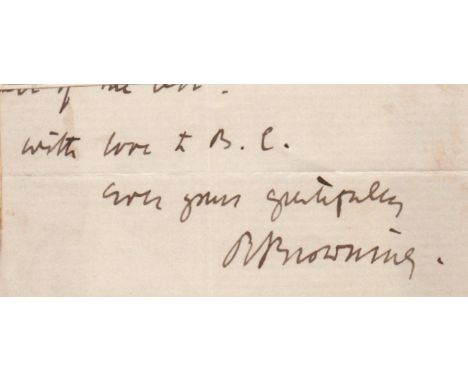 of the
with love to B. C.
Ever yours gratefully
R Browning.